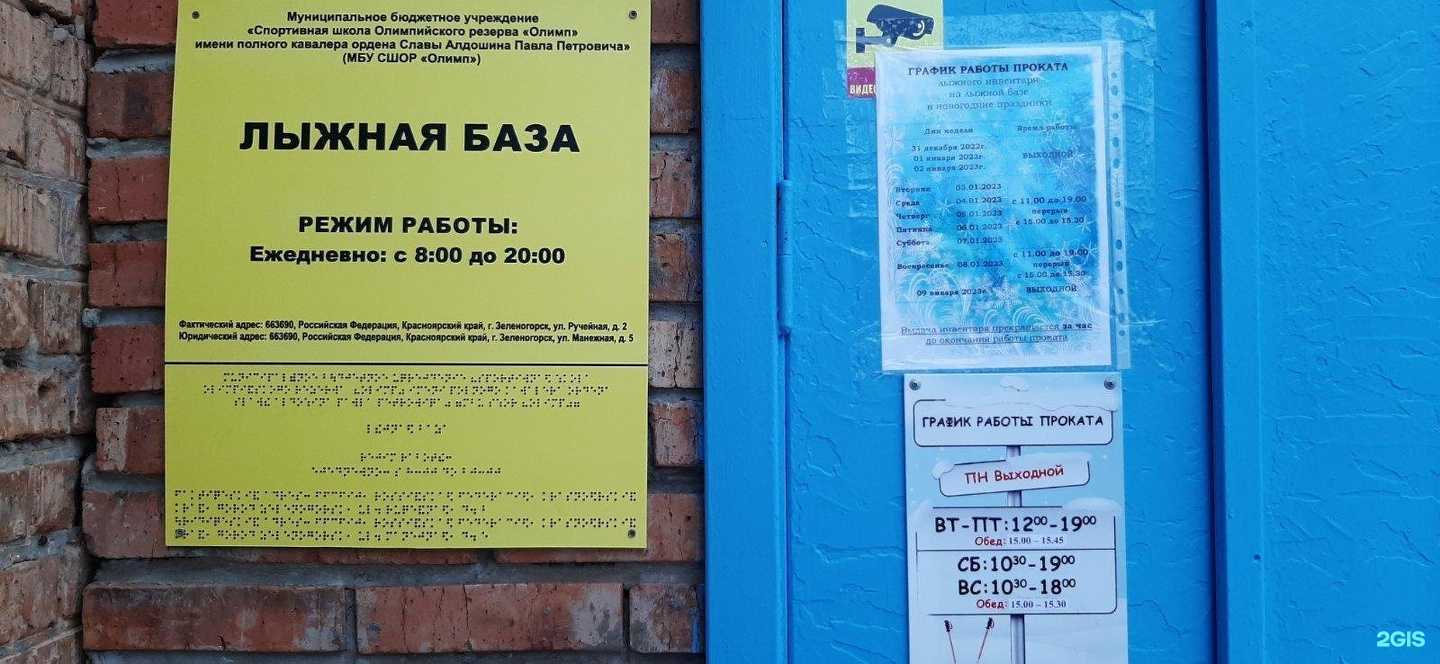 Муниципальное бюджетное учреждение
«Спортивная школа Олимпийского резерва «Олимп»
имени полного кавалера ордена Славы Алдошина Павла Петровича»
(МБУ СШОР «Олимп»)
ЛЫЖНАЯ БАЗА
РЕЖИМ РАБОТЫ:
Ежедневно: с 8:00 до 20:00
Фактический адрес: 663690, Российская Федерация, Красноярский край, г. Зеленогорск, ул. Ручейная, д. 2
Юридический адрес: 663690, Российская Федерация, Красноярский край, г. Зеленогорск, ул. Манежная, д. 5
ВИДЕО
ГРАФИК РАБОТЫ ПРОКАТА
лыжного инвентаря
на лыжной базе
в новогодние праздники
Дни недели Время работы
31 декабря 2022г.
01 января 2023г. ВЫХОДНОЙ
02 января 2023г.
Вторник 03.01.2023
Среда 04.01.2023 с 11.00 до 19.00
Четверг 05.01.2023 перерыв
Пятница 06.01.2023 с 15.00 до 15.30
Суббота 07.01.2023
с 11.00 до 19.00
Воскресенье 08.01.2023 перерыв
с 15.00 до 15.30
09 января 2023г. ВЫХОДНОЙ
Выдача инвентаря прекращается за час
до окончания работы проката
ГРАФИК РАБОТЫ ПРОКАТА
ПН Выходной
ВТ-ПТ:12⁰⁰-19⁰⁰
Обед: 15.00 – 15.45
СБ:10³⁰-19⁰⁰
ВС:10³⁰-18⁰⁰
Обед: 15.00 – 15.30
2GIS